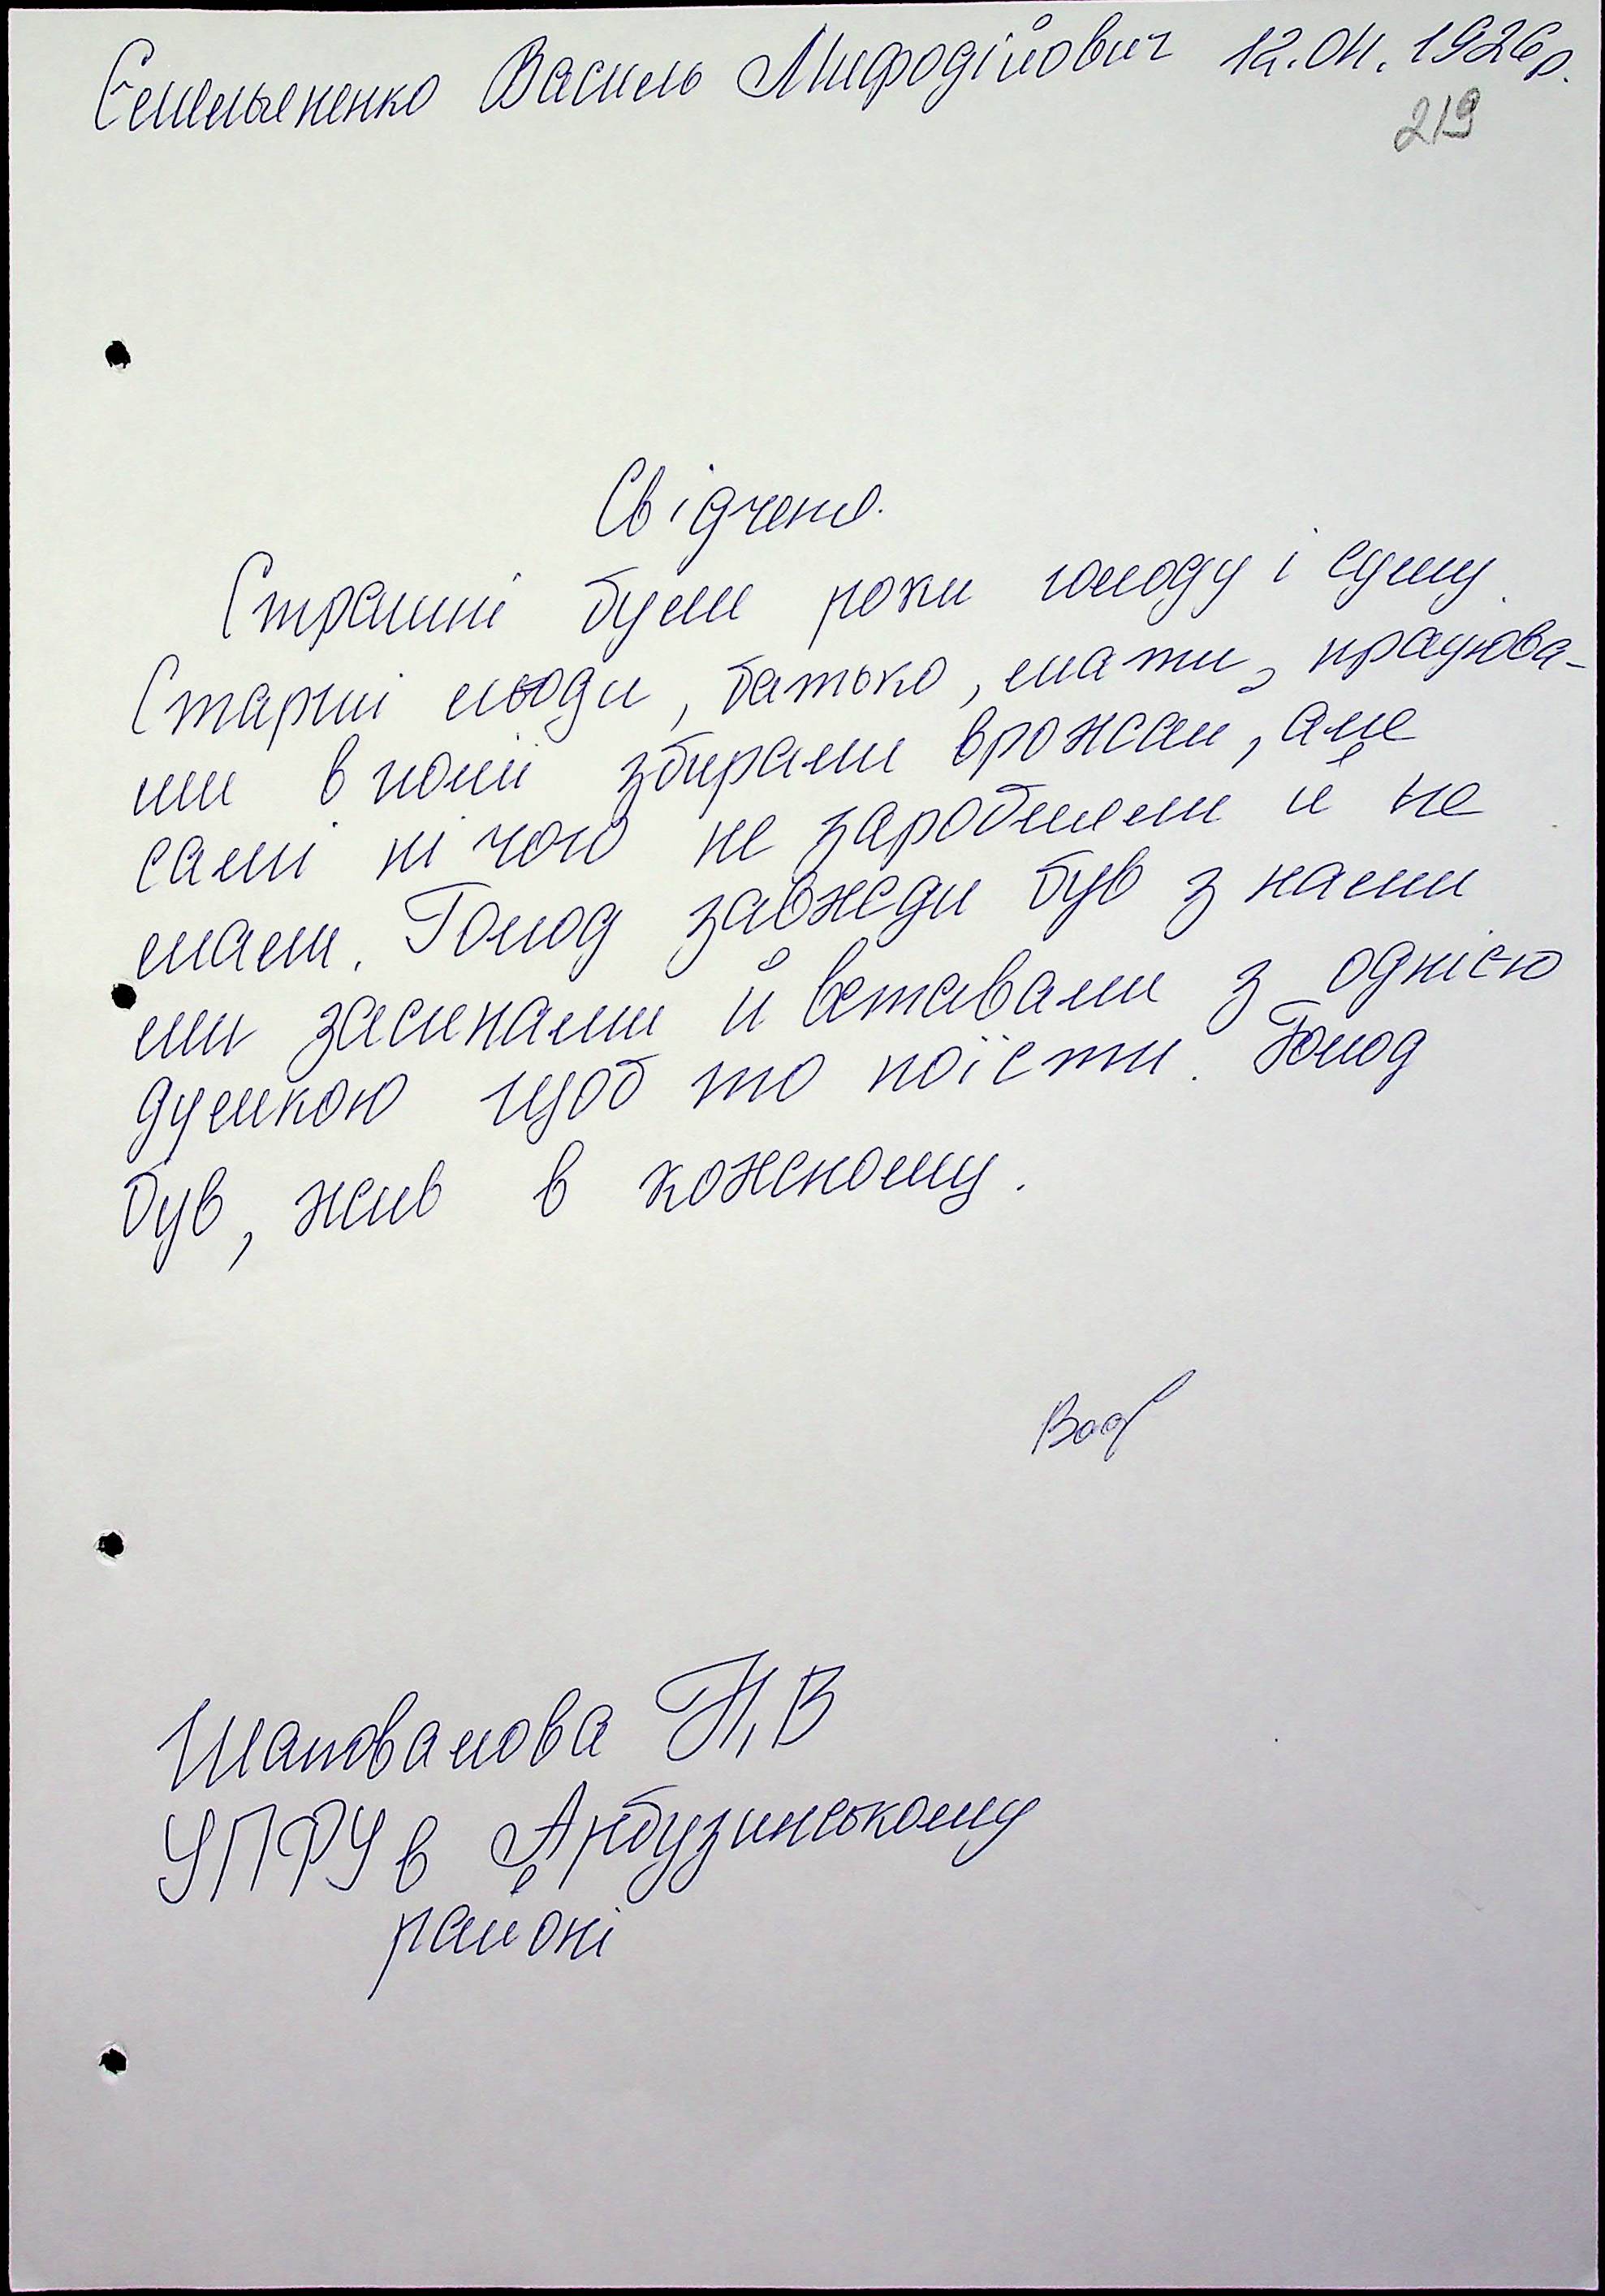 Ємельяненко Василь Мифодійович 12.04.1926р.
219
Свідченя.
Страшні були роки голоду і суму.
Старші люди, батько, мати, працюва-
ли в полі збирали врожай, але
самі ні чого не заробляли й не
мали. Голод завжди був з нами
ми засинали й вставали з однією
думкою щоб то поїсти. Голод
був, жив в кожному.
Шаповалова Н,В
УПФУ в Арбузинському
районі